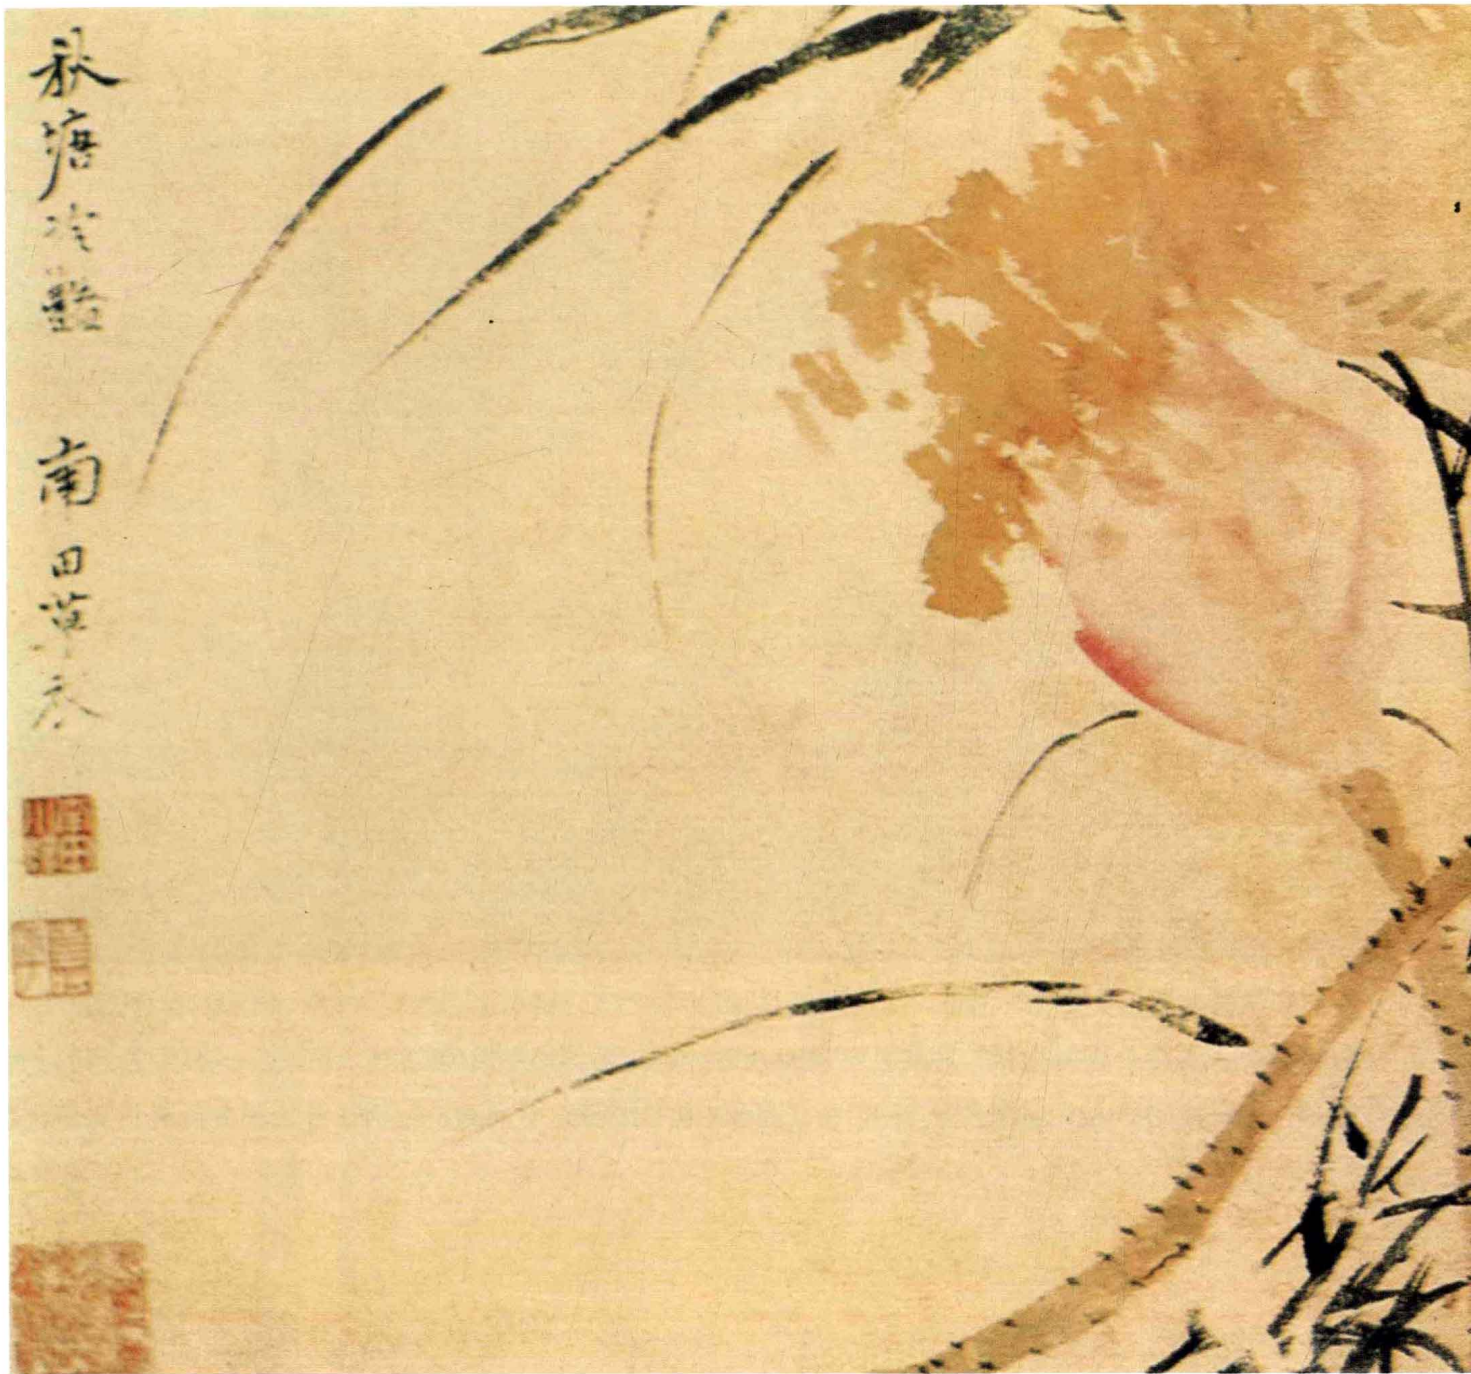 秋塘冷豔　南田草衣